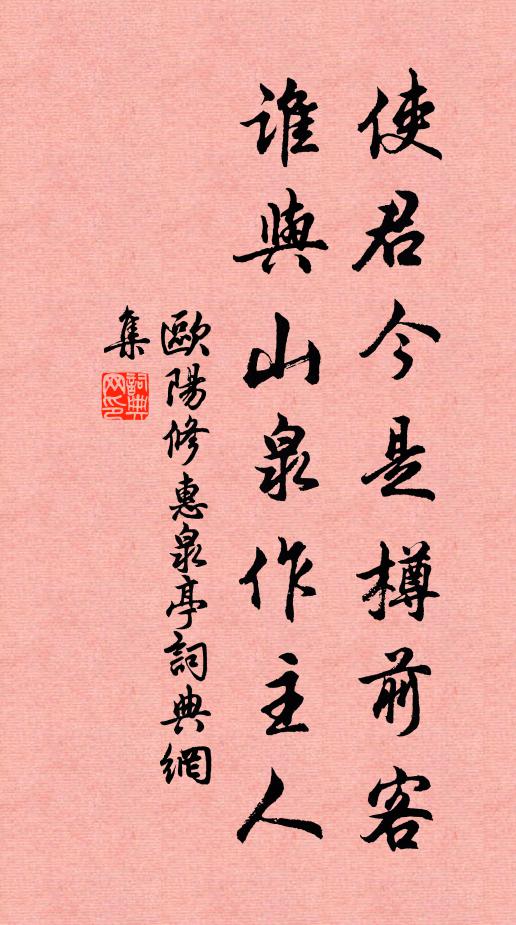 使君今是樽前客
誰與山泉作主人
歐陽修惠泉亭詞典網
集
詞典
网印